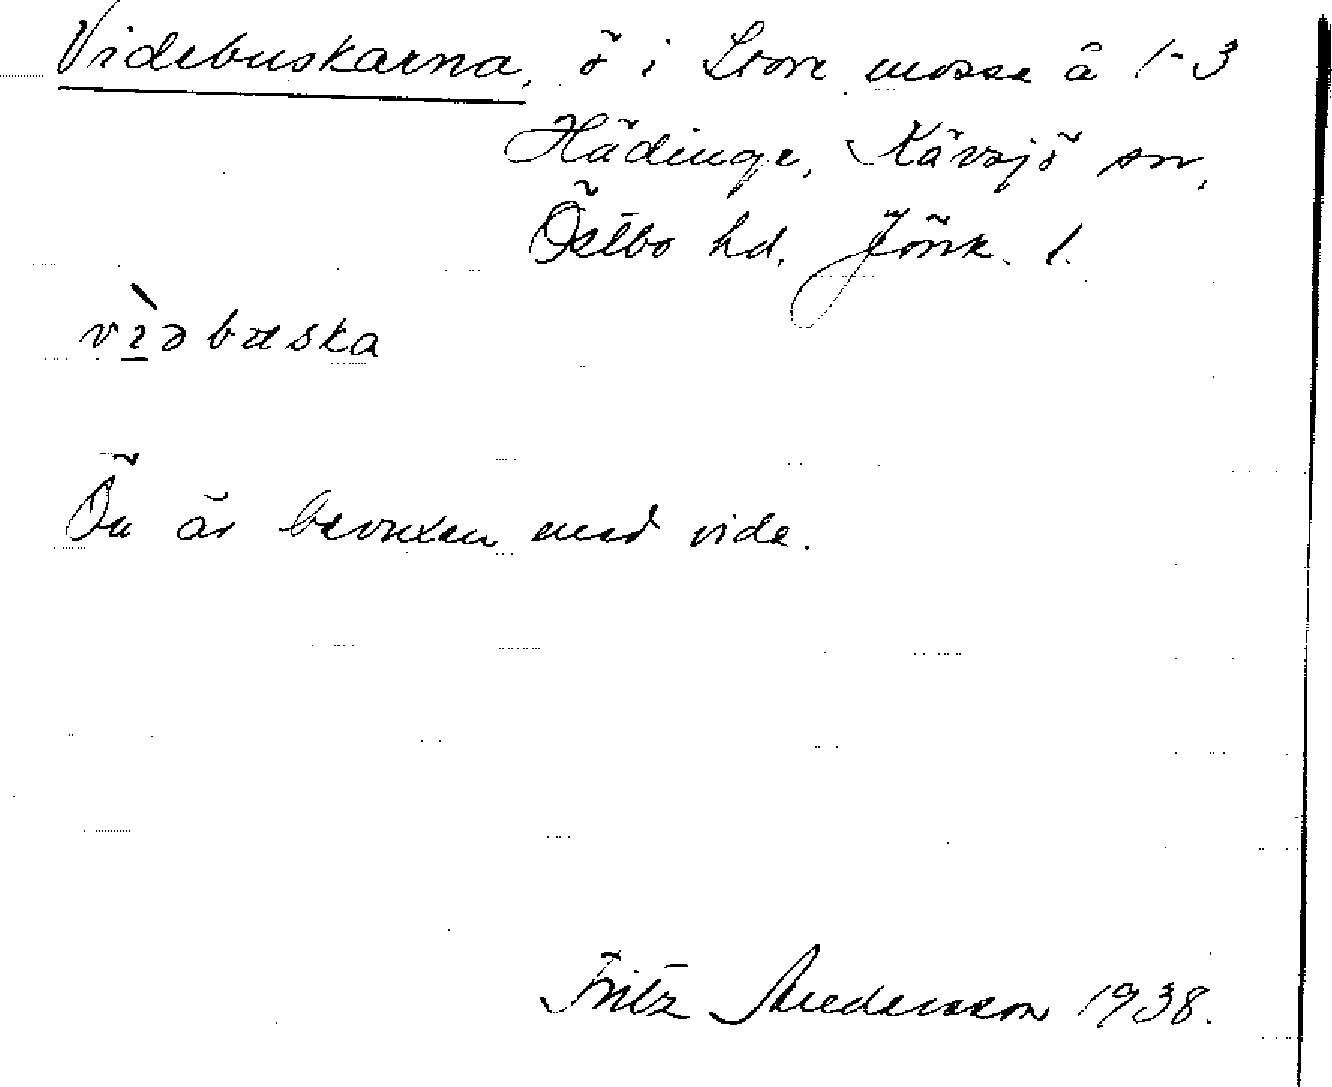 Videbuskarna, ö i Store mosse å 1-3
Hädinge, Kävsjö sn,
Östbo hd. Jönk. l.
vìdbuska
Ön är bevuxen med vide.
Fritz Andersson 1938.